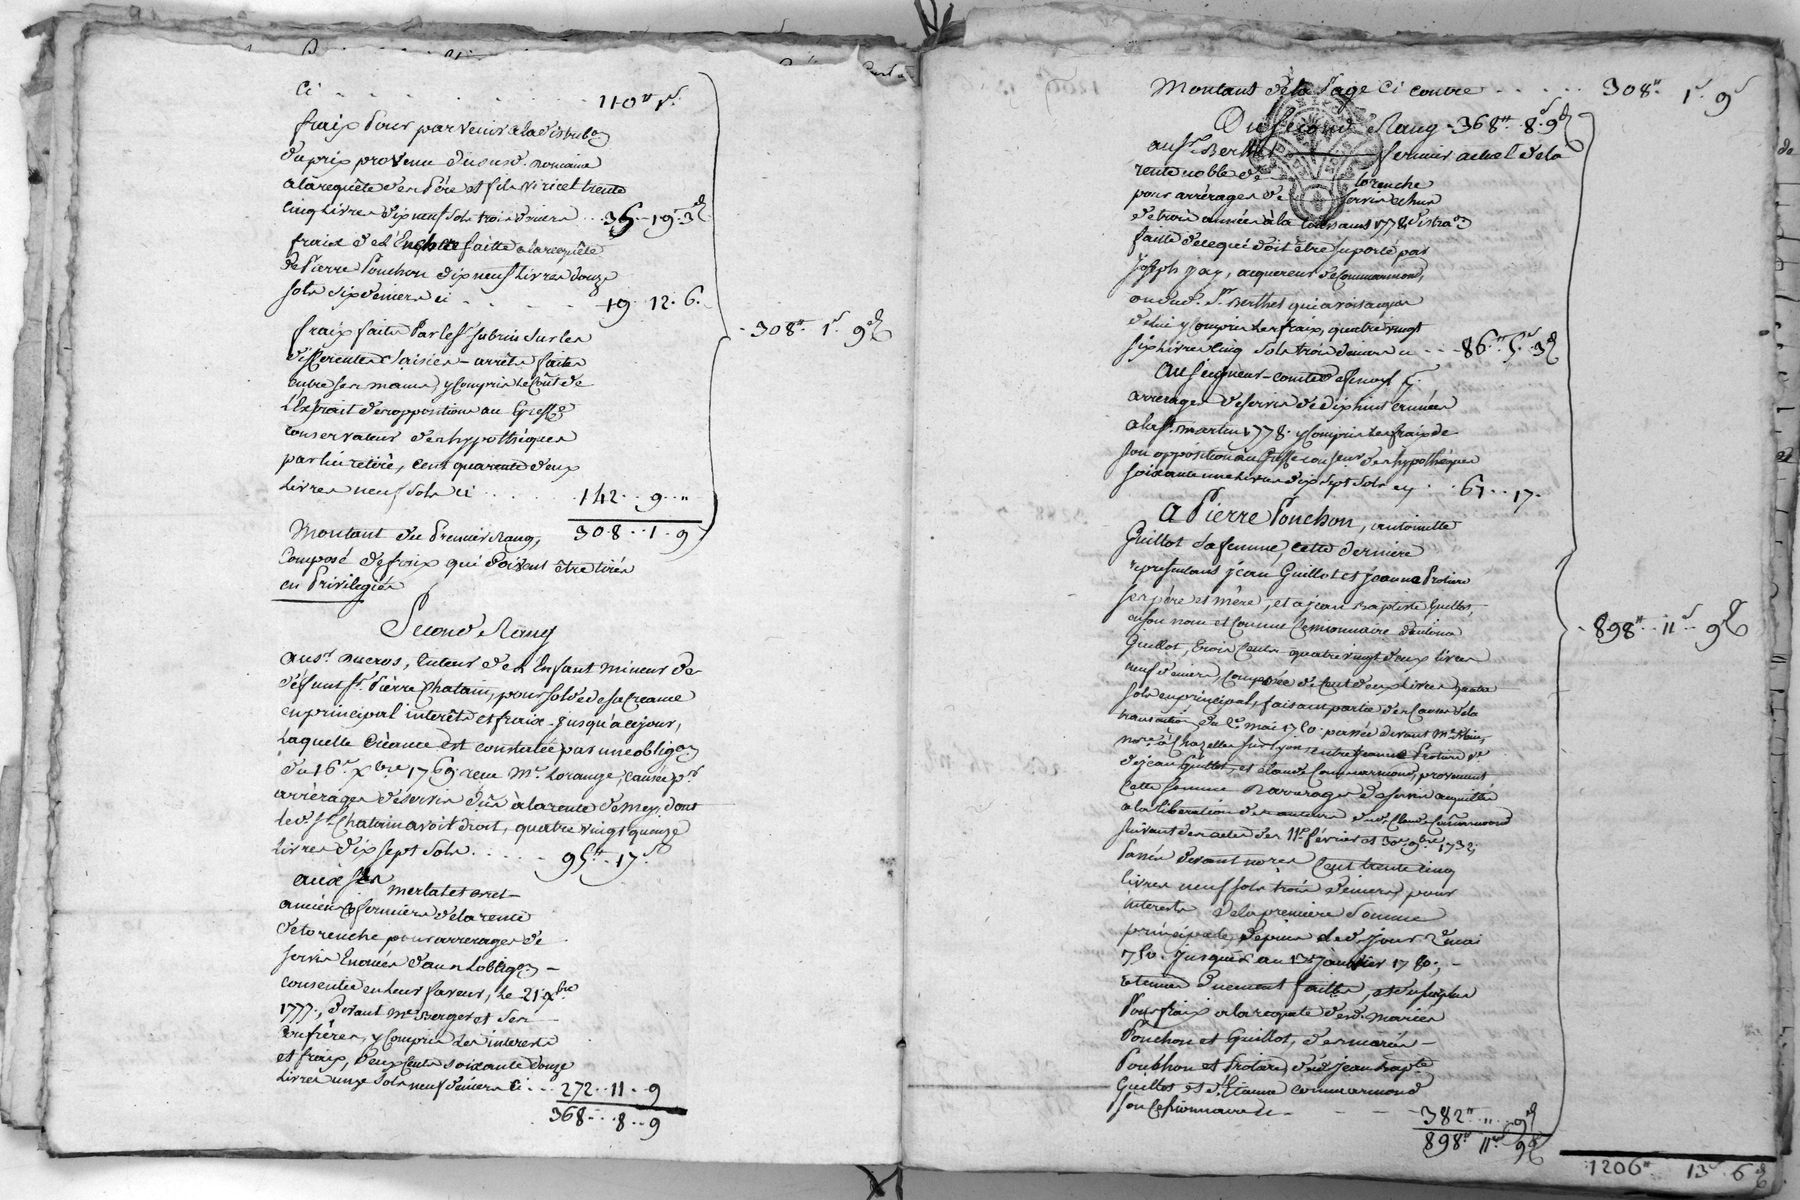 Ci . . . . . . 110# 1s
fraix pour parvenir a la distribon
du prix provenu du susd. domaine
a la requête des Père et fils viricel trente
cinq livres dix neuf sols trois deniers . . 35. 19s 3d
fraix de l'Enchere faitte a la requête
de Pierre Ponchon dix neuf livres douze
sols six deniers ci . . . . 19. 12. 6.
fraix faits Par le Sr subrin sur les
differentes saisies - arrêts faites
entre ses mains, y Compris le Coût de
l'Extrait des oppositions au Greffe
conservateur des hypothèques
par lui retiré, cent quarante deux
livres neuf sols ci . . . . 142 . . 9 . . "
308 . . 1 . 9
308# 1s 9d
Montant du Premier Rang,
Composé de fraix qui doivent être tirés
en Privilegiés
Second Rang
au sr ducros, tuteur de l'Enfant mineur de
défunt sr. Pierre Chatain, pour solde de sa Créance
en principal interêts et fraix jusqu'à ce jour,
Laquelle Créance est constatée par une obligon
du 16e xbre 1769. recu Me Lorange, causée pr
arrérages de servis dûs à la rente de mey, dont
led. sr. Chatain avoit droit, quatre vingt quinze
livres dix sept sols . . . . 95# 17s
aux srs merlat et
anciens fermiers de la rente
de torenche pour arrerages de
servis Enoncés dans l'obligon -
consentie en leur faveur, le 21 xbre
1777, devant Me Berger et son
Confrère, y Compris les interets
et fraix, deux Cents soixante douze
livres onze sols neuf deniers Ci . . 272 . . 11 . . 9
368 . . 8 . . 9
Montant de la Page Ci contre . . . . . 308# 1s 9d
Du second Rang - 368# 8s 9d
au sr. Berthet fermier actuel de la
rente noble de torenche
pour arrérages de servis echus
de trois années à la toussaint 1778. distraon
faitte de ce qui doit être suporté par
Joseph jay, acquereur de Commarmond,
ou dud. Sr Berthet qui a vois acquis
de lui y Compris les fraix, quatre vingt
six livres cinq sols trois deniers ci . . 86# 5s 3d
au seigneur - comte
arrerages de servis de dix huit années
a la St. martin 1778. y Compris les fraix de
son opposition au Greffe conseur des hypothèques
soixante une livres dix sept sols cy . . 61 . . 17.
a Pierre Ponchon, antoinette
Guillot sa femme, cette derniere
representant jean Guillot et jeanne Protiere
ses père et mère, et a jean Baptiste Guillot,
en son nom et Comme Cessionnaire d'antoine
Guillot, trois Cents quatre vingt deux livres
neuf deniers, Composée de Cent deux livres
sols en principal, faisant partie des Causes de la
transaction du 2e mai 1750. passée devant Me
nore à Chazelles sur lyon, entre jeanne Protiere ve
de jean Guillot, et claude Commarmond, provenant
Cette somme d'arrerages de servis acquittés
a la libération des auteurs dud. Claude Commarmond
suivant des actes des 11e février et 30e 9bre 1732;
Passés devant nores Cent trente cinq
livres neuf sols trois deniers pour
interets de la premiere somme
principale, depuis led. jour 2 mai
1750. jusques au 13 Janvier 1780; -
retenues Duement faittes, et le surplus
Pour fraix a la requete desd. mariés
Ponchon et Guillot, des mariés -
Ponchon et Protiere, dud. jean bapte
Guillot et d'Etienne commarmond
son Cessionnaire ci - - - 382# " 9d
898# 11s 9d
898# 11s 9d
1206# 13s 6d